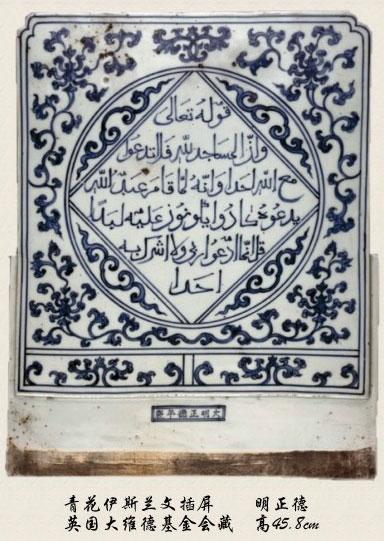 قوله تعالى
وان المساجد لله فلا تدعوا
مع الله احدا وانه لما قام عبد الله
يدعوه كادوا يكونون عليه لبدا
قل انما ادعوا ربي ولا اشرك به
احدا
大明正德年製
青花伊斯兰文插屏 明正德
英国大维德基金会藏 高45.8cm